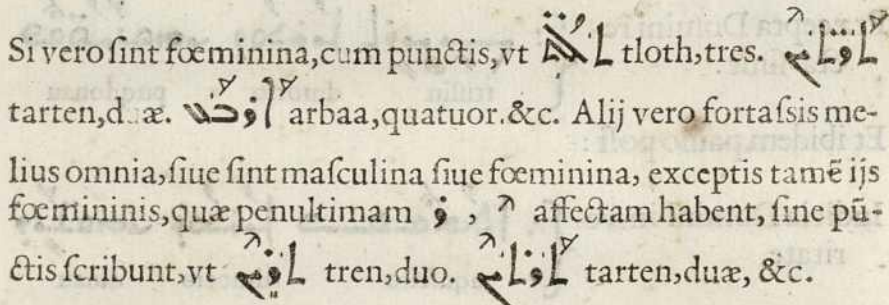 Si vero ſint fœminina,cum punctis,vt ܬܠܳܬ̈ tloth,tres. ܬܰܪܬܶܝܢ
tarten,duæ. ܐܰܪܒܰܥ arbaa,quatuor.&c. Alij vero fortaſsis me-
lius omnia,ſiue ſint maſculina ſiue fœminina, exceptis tamē ijs
fœmininis,quæ penultimam ܪ , ܶ affectam habent, ſine pū-
ctis ſcribunt,vt ܬܪܶܝܢ tren,duo. ܬܰܪܬܶܝܢ tarten,duæ, &c.